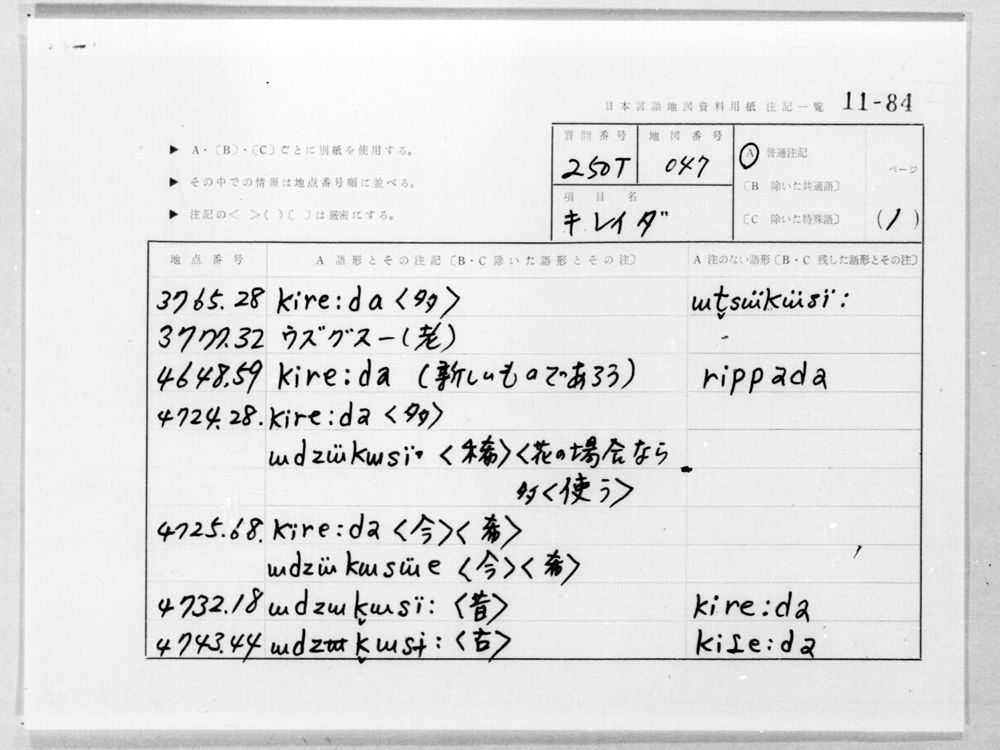 日本言語地図資料用紙 注記一覧 11-84
▶ A・〔B〕・〔C〕ごとに別紙を使用する。
▶ その中での情報は地点番号順に並べる。
▶ 注記の< >( )〔 〕は厳密にする。
質問番号 地図番号
250T 047
項目名
キレイダ
A 普通注記
〔B 除いた共通語〕
〔C 除いた特殊語〕
ページ
(1)
地点番号 A 語形とその注記〔B・C 除いた語形とその注〕 A 注のない語形〔B・C 残した語形とその注〕
3765.28 kire:da〈多〉 ɯt̬sɯ̈kɯ̈sï:
3777.32 ウズグスー(老)
4648.59 kire:da (新しいものであろう) rippada
4724.28. kire:da〈多〉
ɯdzɯ̈kɯsï・〈稀〉〈花の場合なら
多く使う〉
4725.68. kïre:da〈今〉〈稀〉
ɯdzɯ̈kɯsɯ̈e〈今〉〈稀〉
4732.18 ɯdzɯk̬ɯsï:〈昔〉 kire:da
4743.44 ɯdzɯk̬ɯsɨ:〈古〉 kiɾe:da